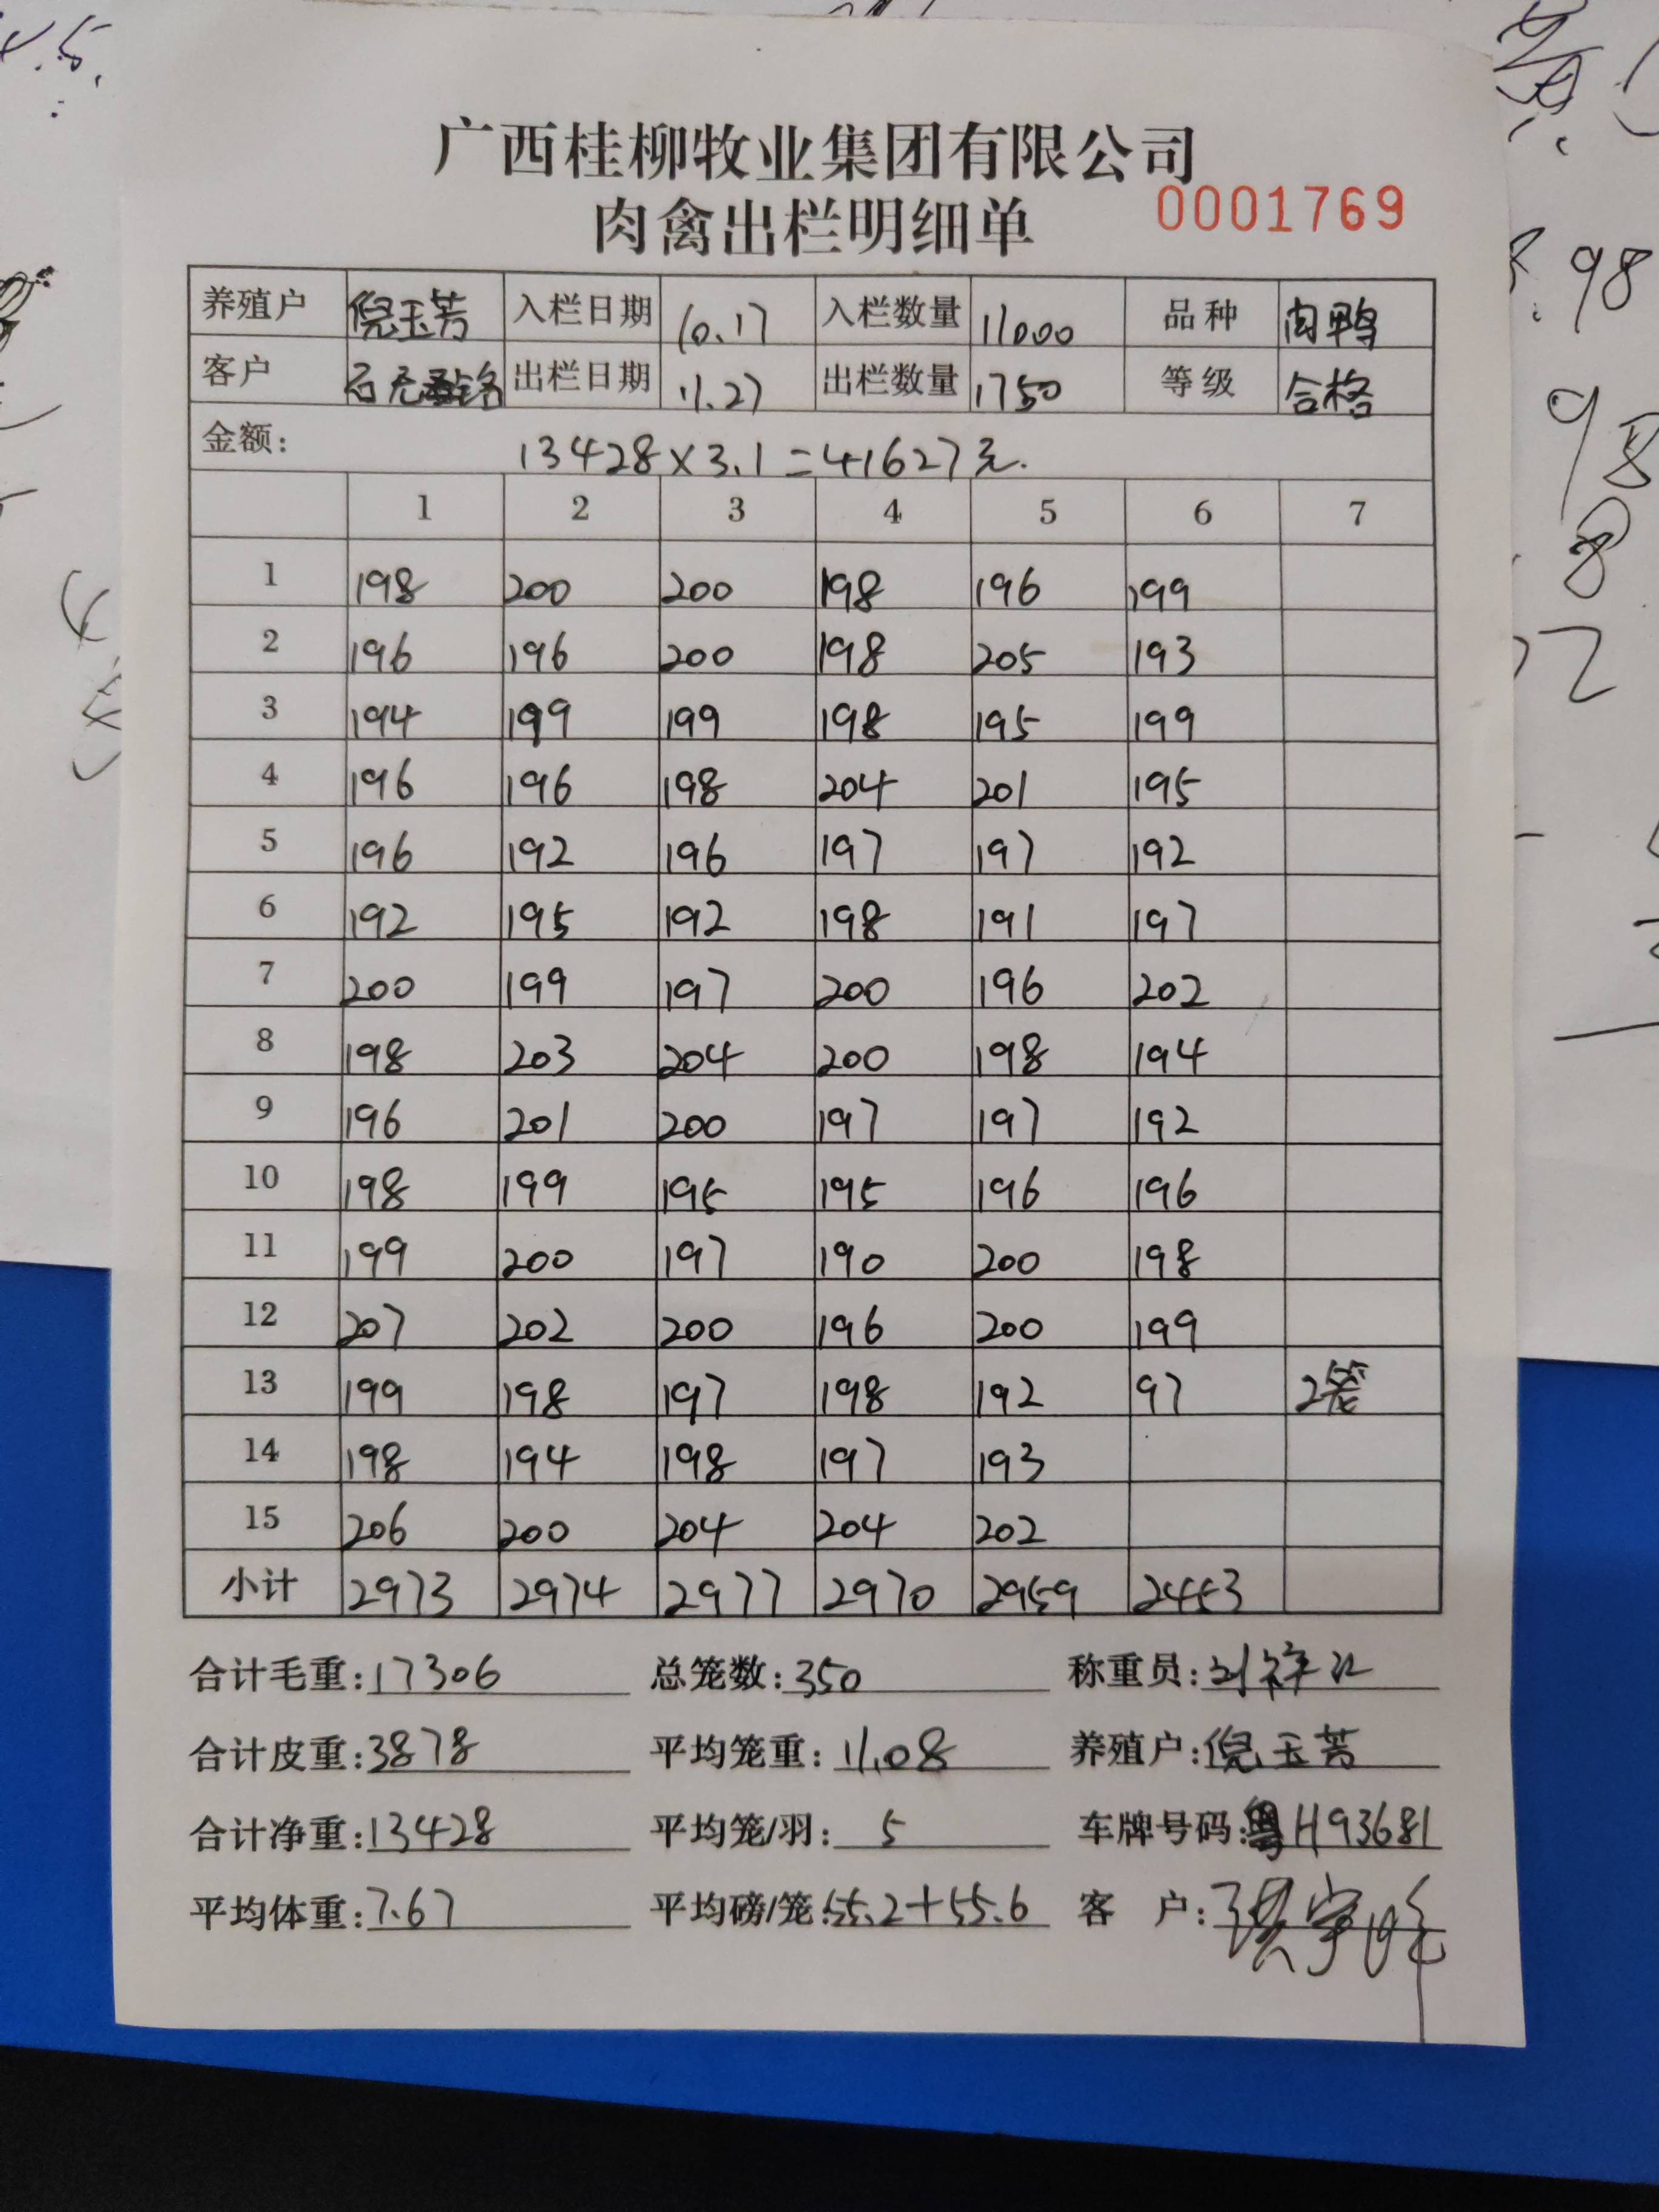 广西桂柳牧业集团有限公司
肉禽出栏明细单 0001769
养殖户 倪玉芳 入栏日期 10.17 入栏数量 11000 品种 肉鸭
客户 石 铭 出栏日期 11.27 出栏数量 1750 等级 合格
金额: 13428×3.1=41627元.
1 2 3 4 5 6 7
1 198 200 200 198 196 199
2 196 196 200 198 205 193
3 194 199 199 198 195 199
4 196 196 198 204 201 195
5 196 192 196 197 197 192
6 192 195 192 198 191 197
7 200 199 197 200 196 202
8 198 203 204 200 198 194
9 196 201 200 197 197 192
10 198 199 195 195 196 196
11 199 200 197 190 200 198
12 207 202 200 196 200 199
13 199 198 197 198 192 97 2笼
14 198 194 198 197 193
15 206 200 204 204 202
小计 2973 2974 2977 2970 2959 2453
合计毛重:17306 总笼数:350 称重员:刘祥江
合计皮重:3878 平均笼重:11.08 养殖户:倪玉芳
合计净重:13428 平均笼/羽: 5 车牌号码:粤H93681
平均体重:7.67 平均磅/笼:55.2+55.6 客 户:
98
98
8